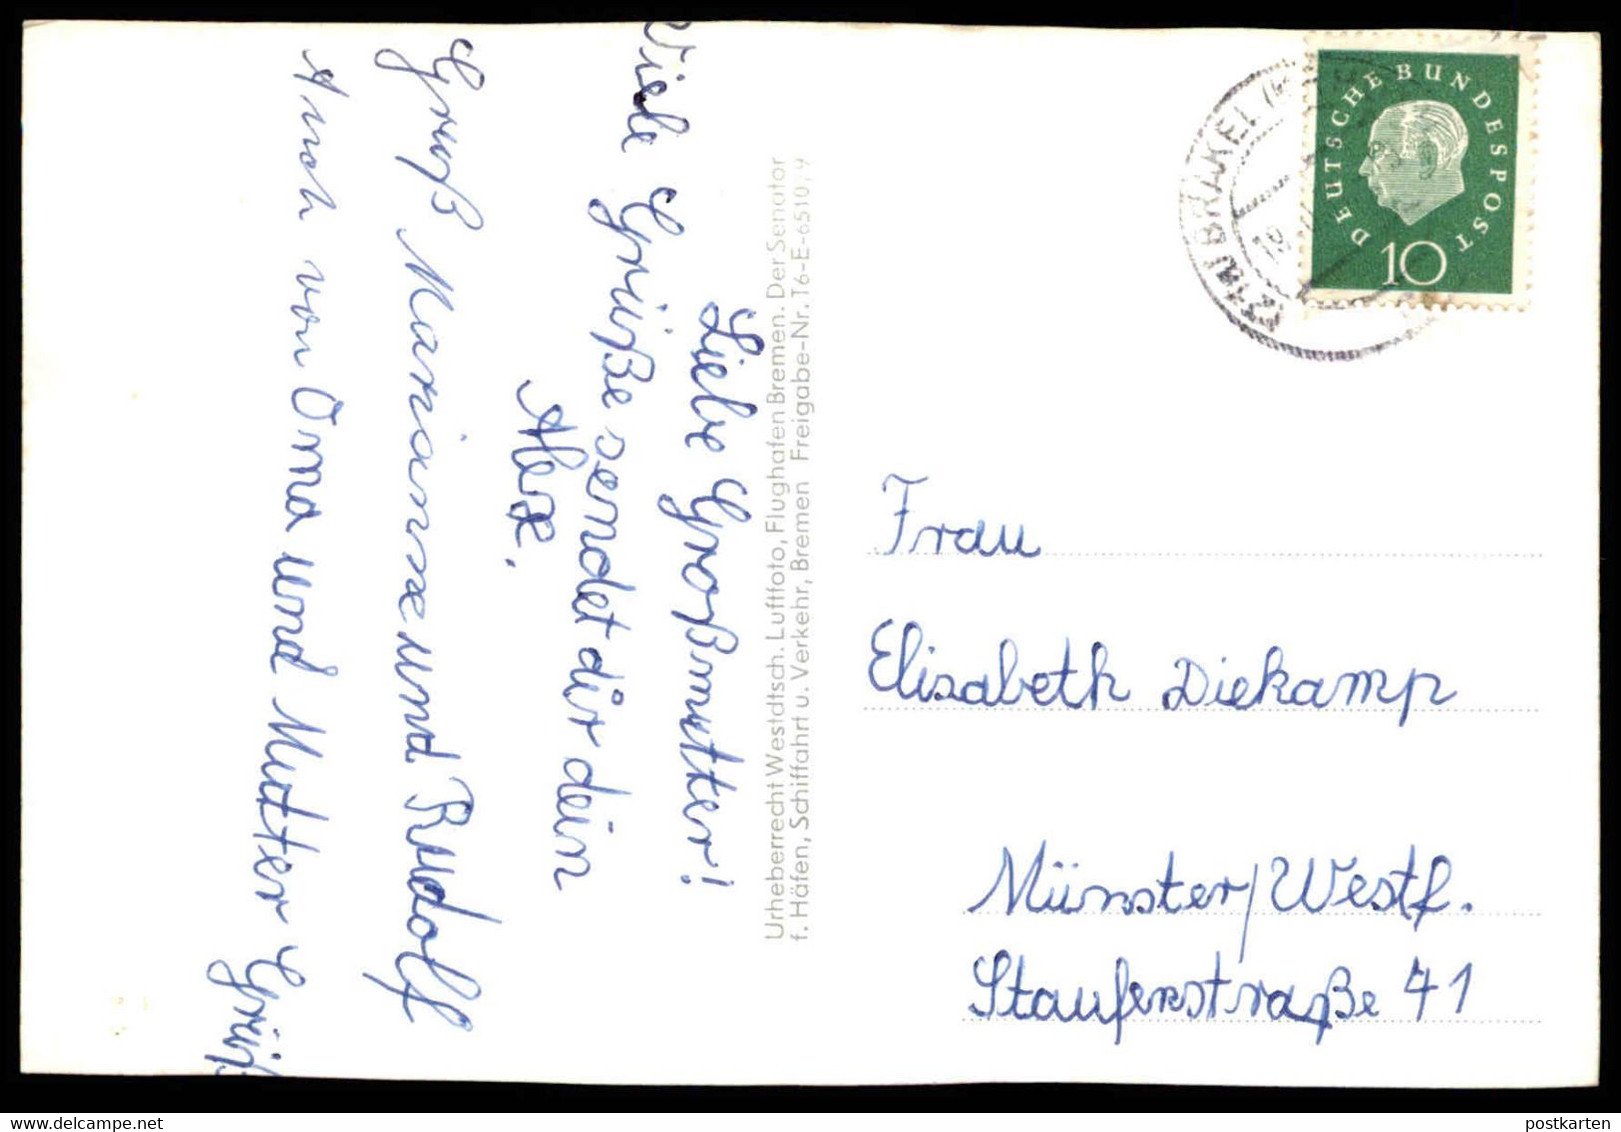 Liebe Großmutter!
Viele Grüße sendet dir dein
Alex.
Gruß Marianne und Rudolf
Auch von Oma und Mutter Grüß
Urheberrecht Westdtsch. Luftfoto, Flughafen Bremen. Der Senator
f. Häfen, Schiffahrt u. Verkehr, Bremen Freigabe-Nr. T6-E-6510/9
DEUTSCHE BUNDESPOST
10
(21a) BRAKEL
Frau
Elisabeth Diekamp
Münster/Westf.
Stauferstraße 41
postkarten